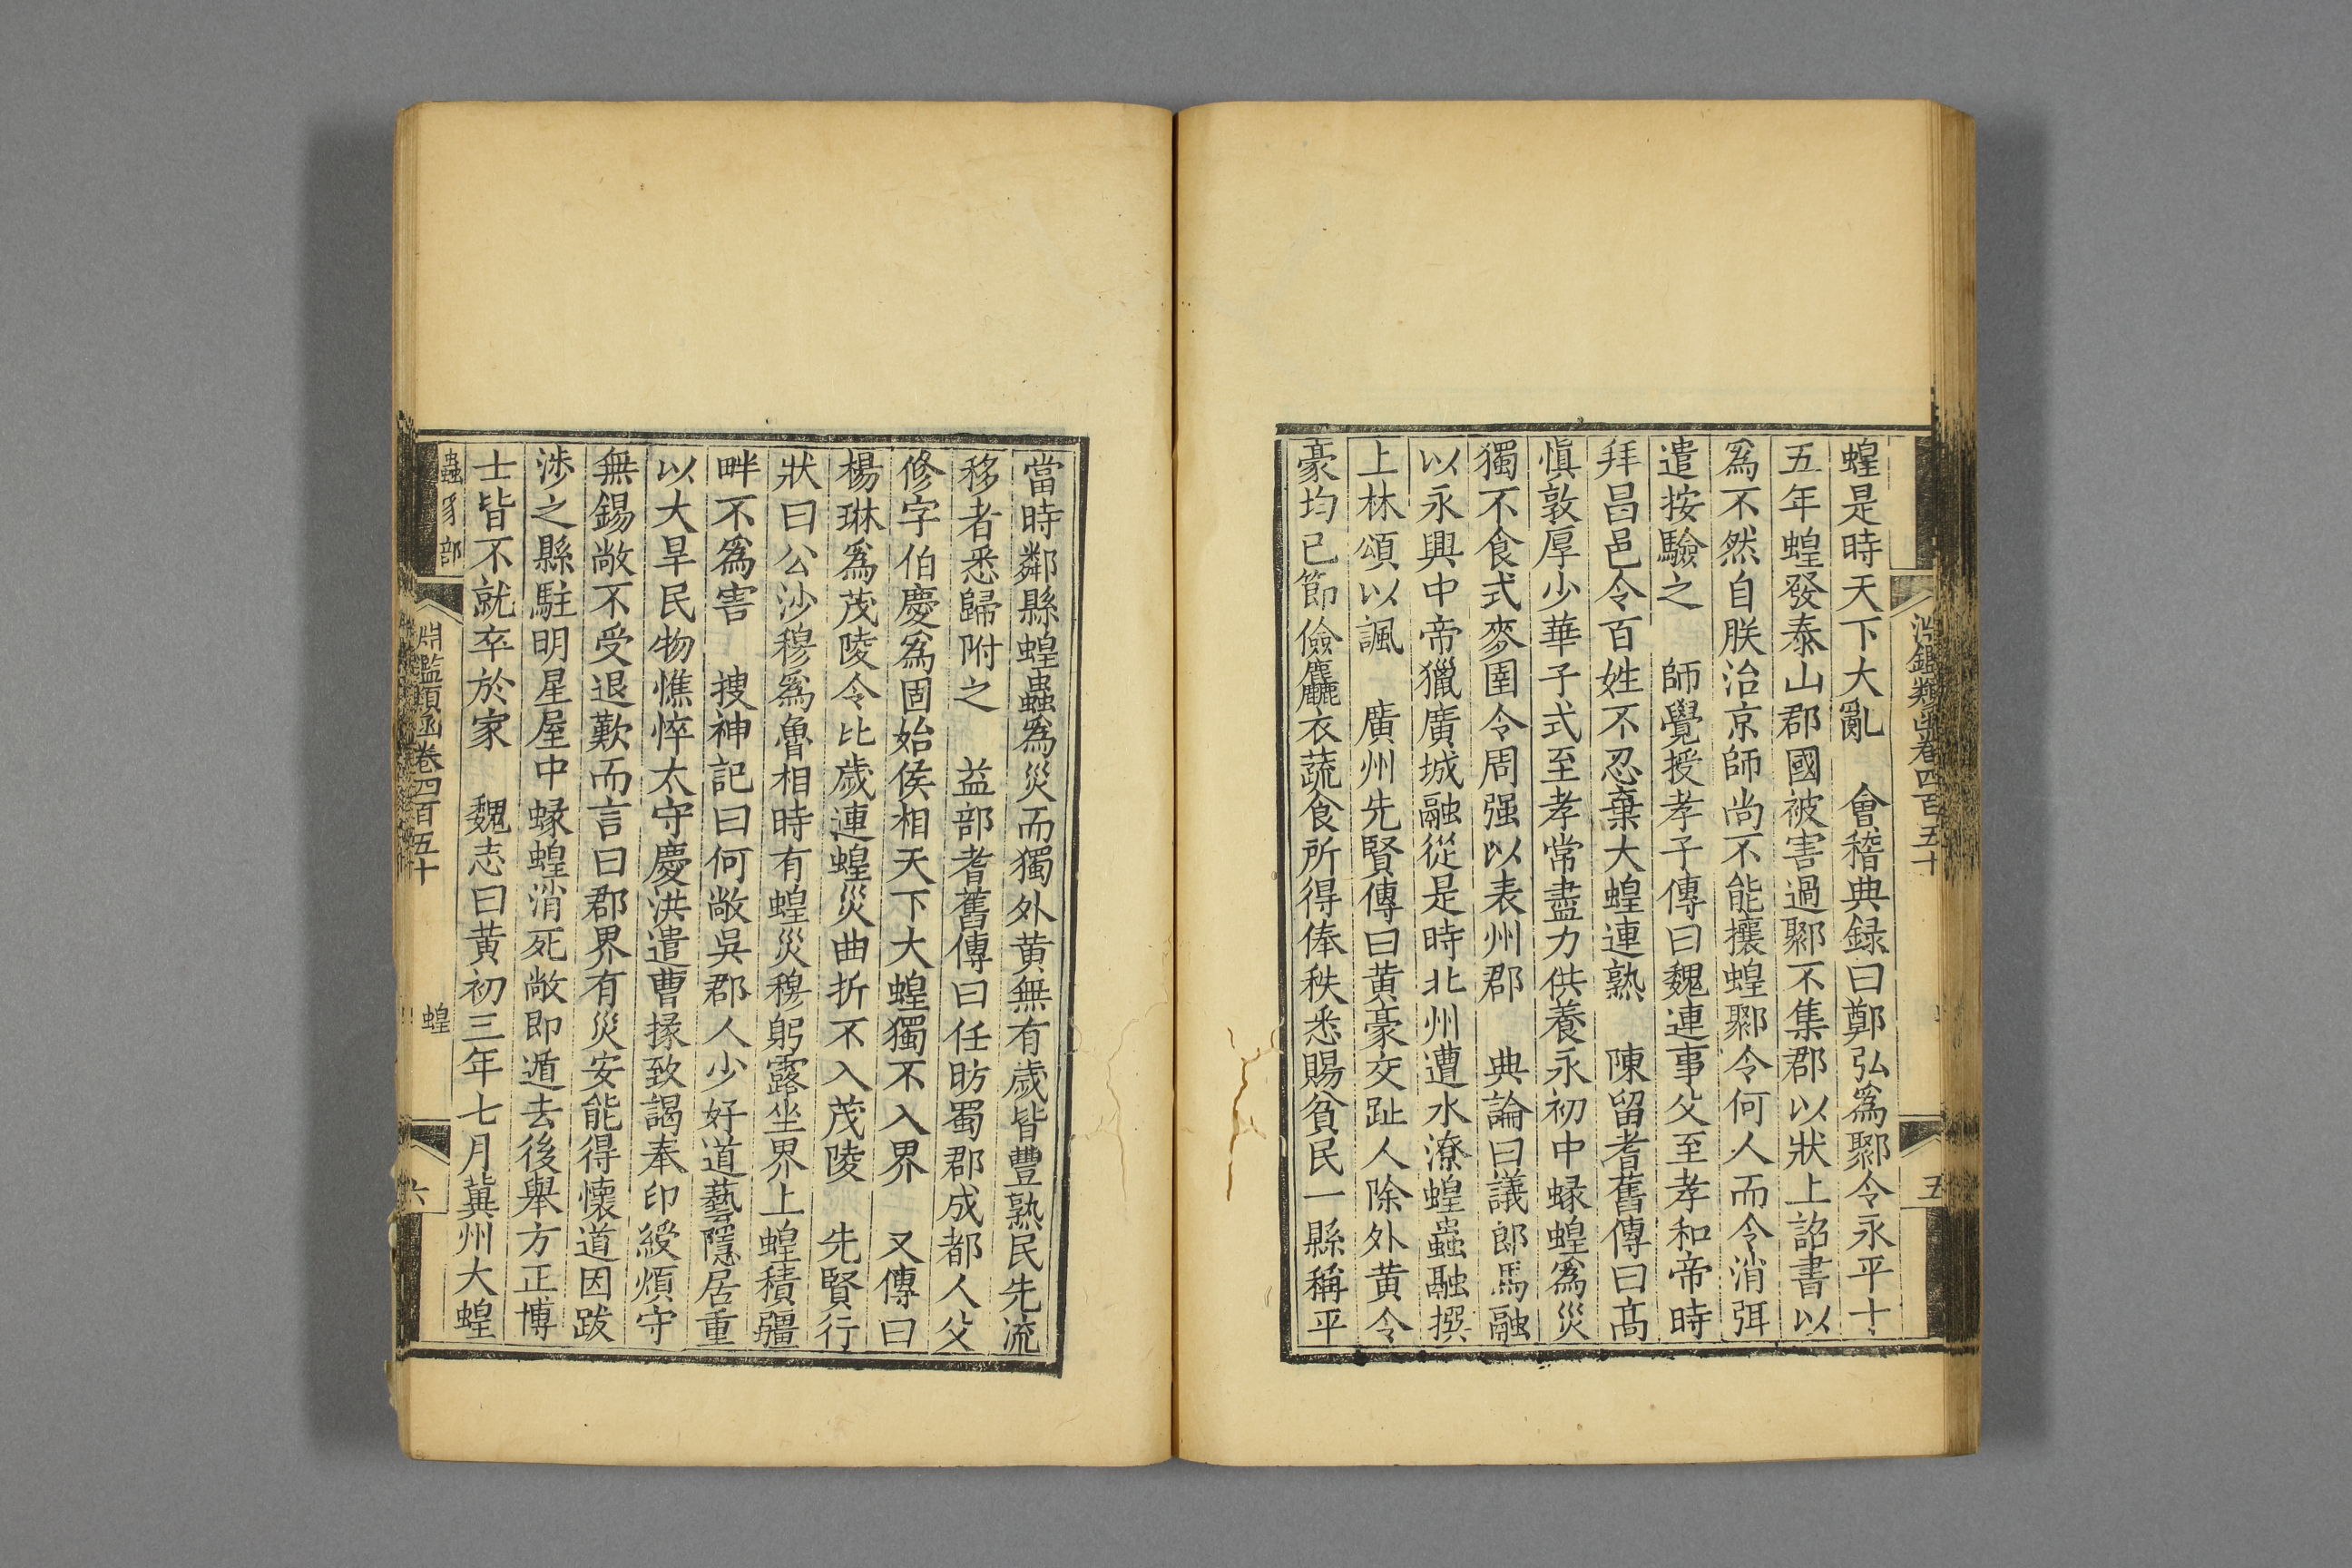 淵鑑類函卷四百五十
五
蝗是時天下大亂　會稽典録曰鄭弘爲鄹令永平十
五年蝗發泰山郡國被害過鄹不集郡以狀上詔書以
爲不然自朕治京師尚不能攘蝗鄹令何人而令消弭
遣按驗之　師覺授孝子傳曰魏連事父至孝和帝時
拜昌邑令百姓不忍棄大蝗連熟　陳留耆舊傳曰髙
愼敦厚少華子式至孝常盡力供養永初中蝝蝗爲災
獨不食式麥圉令周强以表州郡　典論曰議郎馬融
以永興中帝獵廣城融從是時北州遭水潦蝗蟲融撰
上林頌以諷　廣州先賢傳曰黄豪交趾人除外黄令
豪均己節儉麤衣蔬食所得俸秩悉賜貧民一縣稱平
當時鄰縣蝗蟲爲災而獨外黄無有歲皆豐熟民先流
移者悉歸附之　益部耆舊傳曰任昉蜀郡成都人父
修字伯慶爲固始侯相天下大蝗獨不入界　又傳曰
楊琳爲茂陵令比歲連蝗災曲折不入茂陵　先賢行
狀曰公沙穆爲魯相時有蝗災穆躬露坐界上蝗積疆
畔不爲害　捜神記曰何敞吳郡人少好道藝隱居重
以大旱民物憔悴太守慶洪遣曹掾致謁奉印綬煩守
無錫敞不受退歎而言曰郡界有災安能得懷道因跋
渉之縣駐明星屋中蝝蝗消死敞即遁去後舉方正博
士皆不就卒於家　魏志曰黄初三年七月冀州大蝗
蟲豸部
淵鑑類函卷四百五十
蝗
六